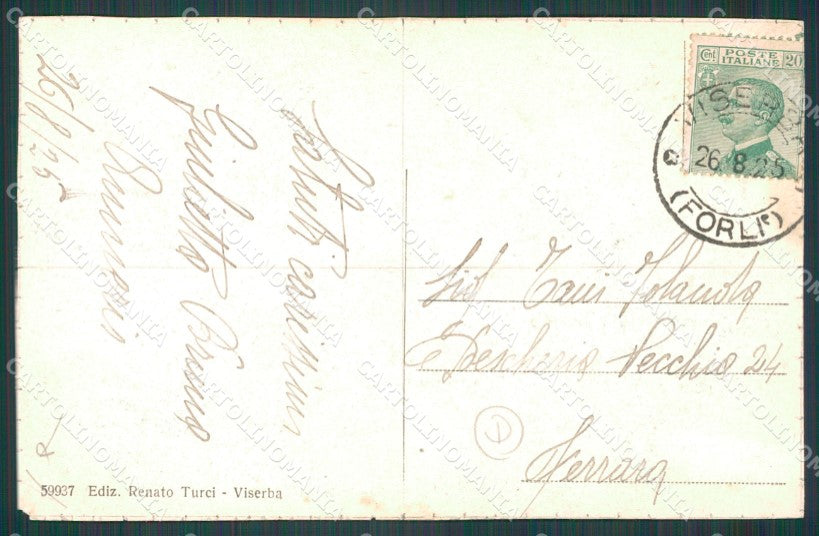 26/8/25
Saluti carissimi
Giulietta Bruno
POSTE
ITALIANE
Cent. 20
VISERBA
26.8.25
(FORLI)
Iolanda
Pescheria Vecchia 24
Ferrara
59937 Ediz. Renato Turci - Viserba
D
CARTOLINOMANIA